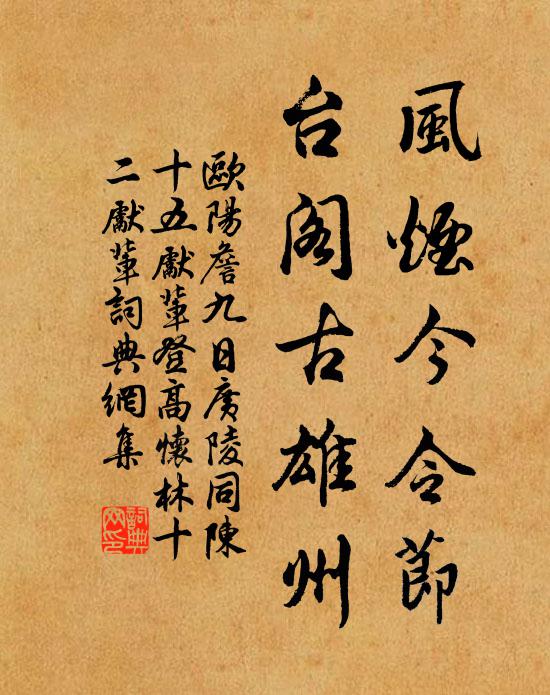 風煙今令節
台閣古雄州
歐陽詹九日廣陵同陳
十五獻輩登高懷林十
二獻輩詞典網集